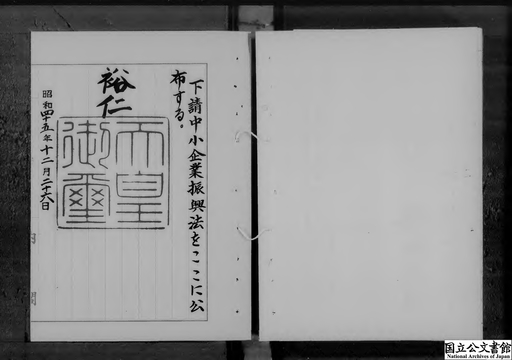 下請中小企業振興法をここに公
布する。
裕仁
天皇
御璽
昭和四十五年十二月二十六日
国立公文書館
National Archives of Japan